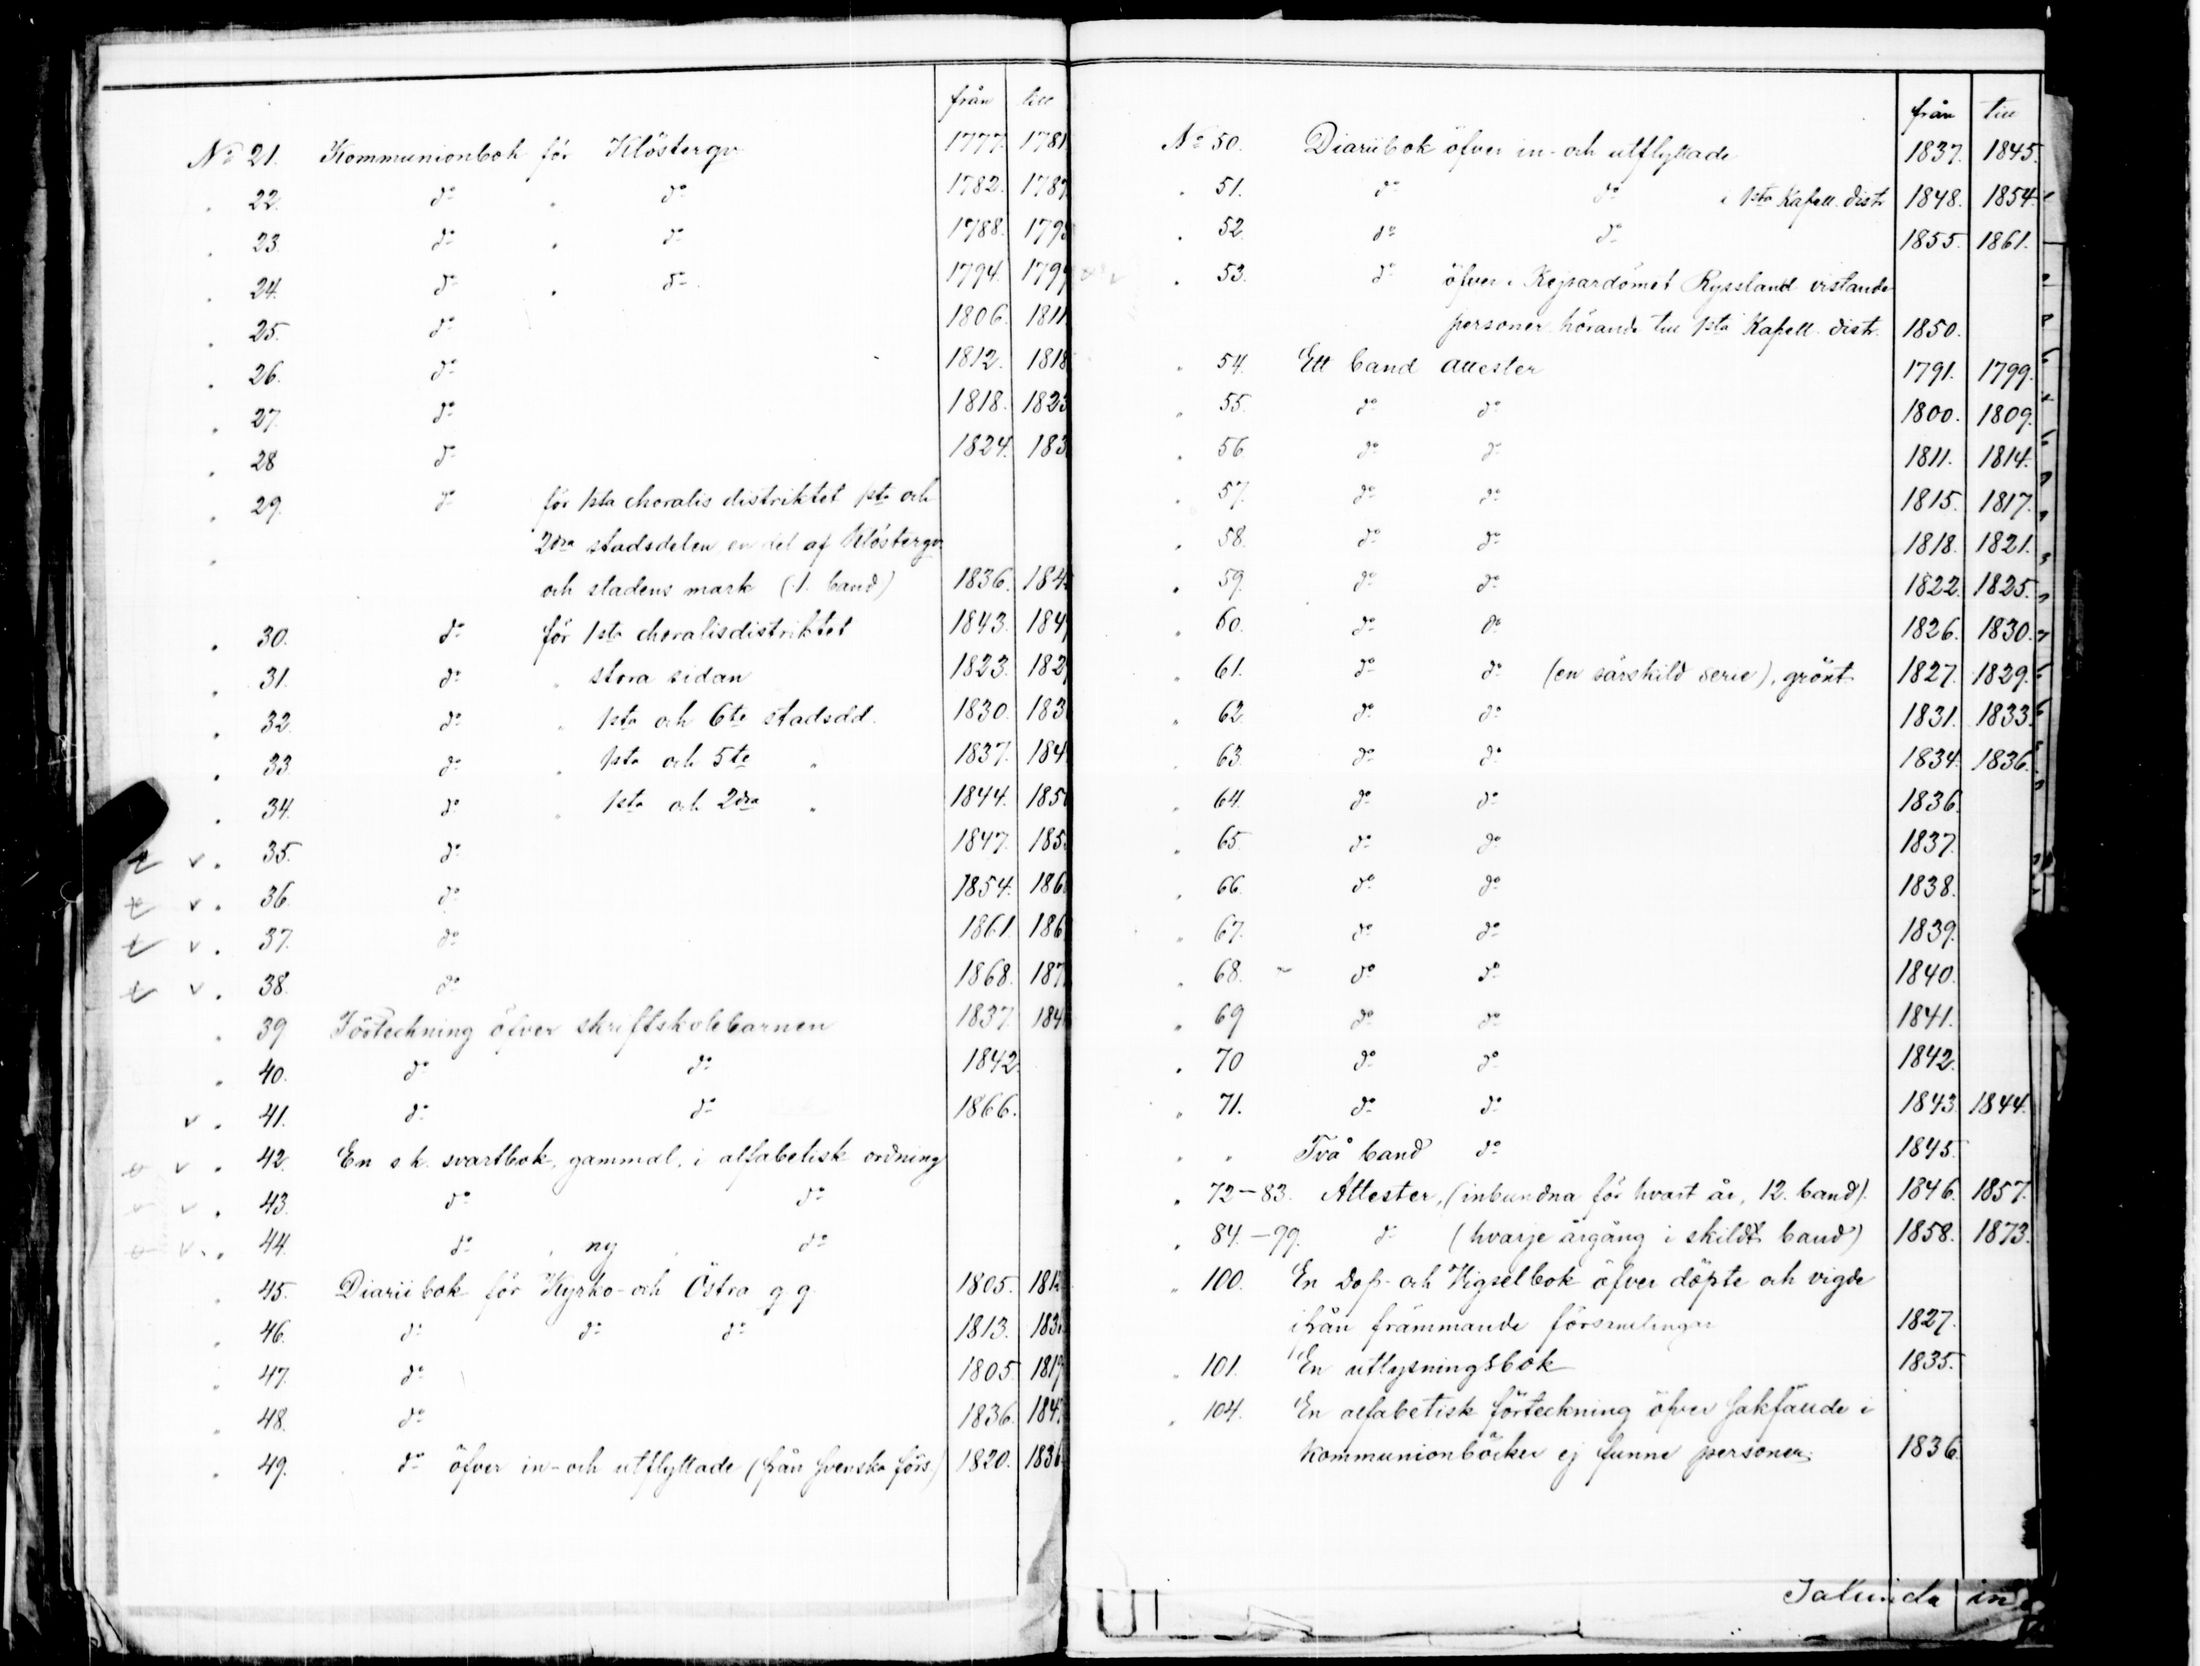 från till
No 21. Kommunionbok för Klöstergr 1777. 1781
" 22. do " do 1782. 1787.
" 23 do " do 1788. 1793
" 24. do " do 1794. 1799
" 25. do 1806. 1811
" 26. do 1812. 1818
" 27. do 1818. 1823
" 28 do 1824. 183
" 29. do för 1sta choralis distriktet 1sta och
" 2dra stadsdelen, en del af Klöstergr
och stadens mark (1. band) 1836. 184
" 30. do för 1sta choralisdistriktet 1843. 184
" 31. do " stora sidan 1823. 182
" 32. do " 1sta och 6te stadsdel. 1830. 183
" 33 do " 1sta och 5te " 1837. 184
" 34. do " 1sta och 2dra " 1844. 185
v " 35. do 1847. 185
v " 36. do 1854. 186
v " 37. do 1861. 186
v " 38. do 1868. 187
" 39 Förteckning öfver skriftskolebarnen 1837. 184
" 40. do do 1842.
v " 41. do do 1866.
v " 42. En s k. svartbok, gammal, i alfabetisk ordning
v " 43. do do
v " 44. do , ny , do
" 45. Diariibok för Kyrko- och Östra g. g. 1805. 1812
" 46. do do do 1813. 183
" 47. do 1805. 1819
" 48. do 1836. 184
" 49. do öfver in- och utflyttade (från svenska förs.) 1820. 1836
från till
No 50. Diariibok öfver in- och utflyttade 1837. 1845.
" 51. do do i 1sta Kapell. distr 1848. 1854.
" 52 do do 1855. 1861.
" 53. do öfver i Kejsardömet Ryssland vistande
personer hörande till 1sta Kapell. distr. 1850.
" 54. Ett band attester 1791. 1799.
" 55. do do 1800. 1809.
" 56 do do 1811. 1814.
" 57. do do 1815. 1817.
" 58. do do 1818. 1821.
" 59. do do 1822. 1825.
" 60. do do 1826. 1830.
" 61. do do (en särskild serie), grönt 1827. 1829.
" 62 do do 1831. 1833.
" 63. do do 1834. 1836.
" 64. do do 1836.
" 65 do do 1837.
" 66. do do 1838.
" 67. do do 1839.
" 68. do do 1840.
" 69 do do 1841.
" 70 do do 1842.
" 71. do do 1843. 1844.
" " Två band do 1845.
" 72-83. Attester, (inbundna för hvart år, 12. band). 1846. 1857.
" 84.-99. do (hvarje årgång i skildt band) 1858. 1873.
" 100. En Dop- och Vigselbok öfver döpte och vigde
ifrån främmande församlingar 1827.
" 101. En utlysningsbok 1835.
" 104. En alfabetisk förteckning öfver sakfällde i
kommunionböcker ej funne personer. 1836.